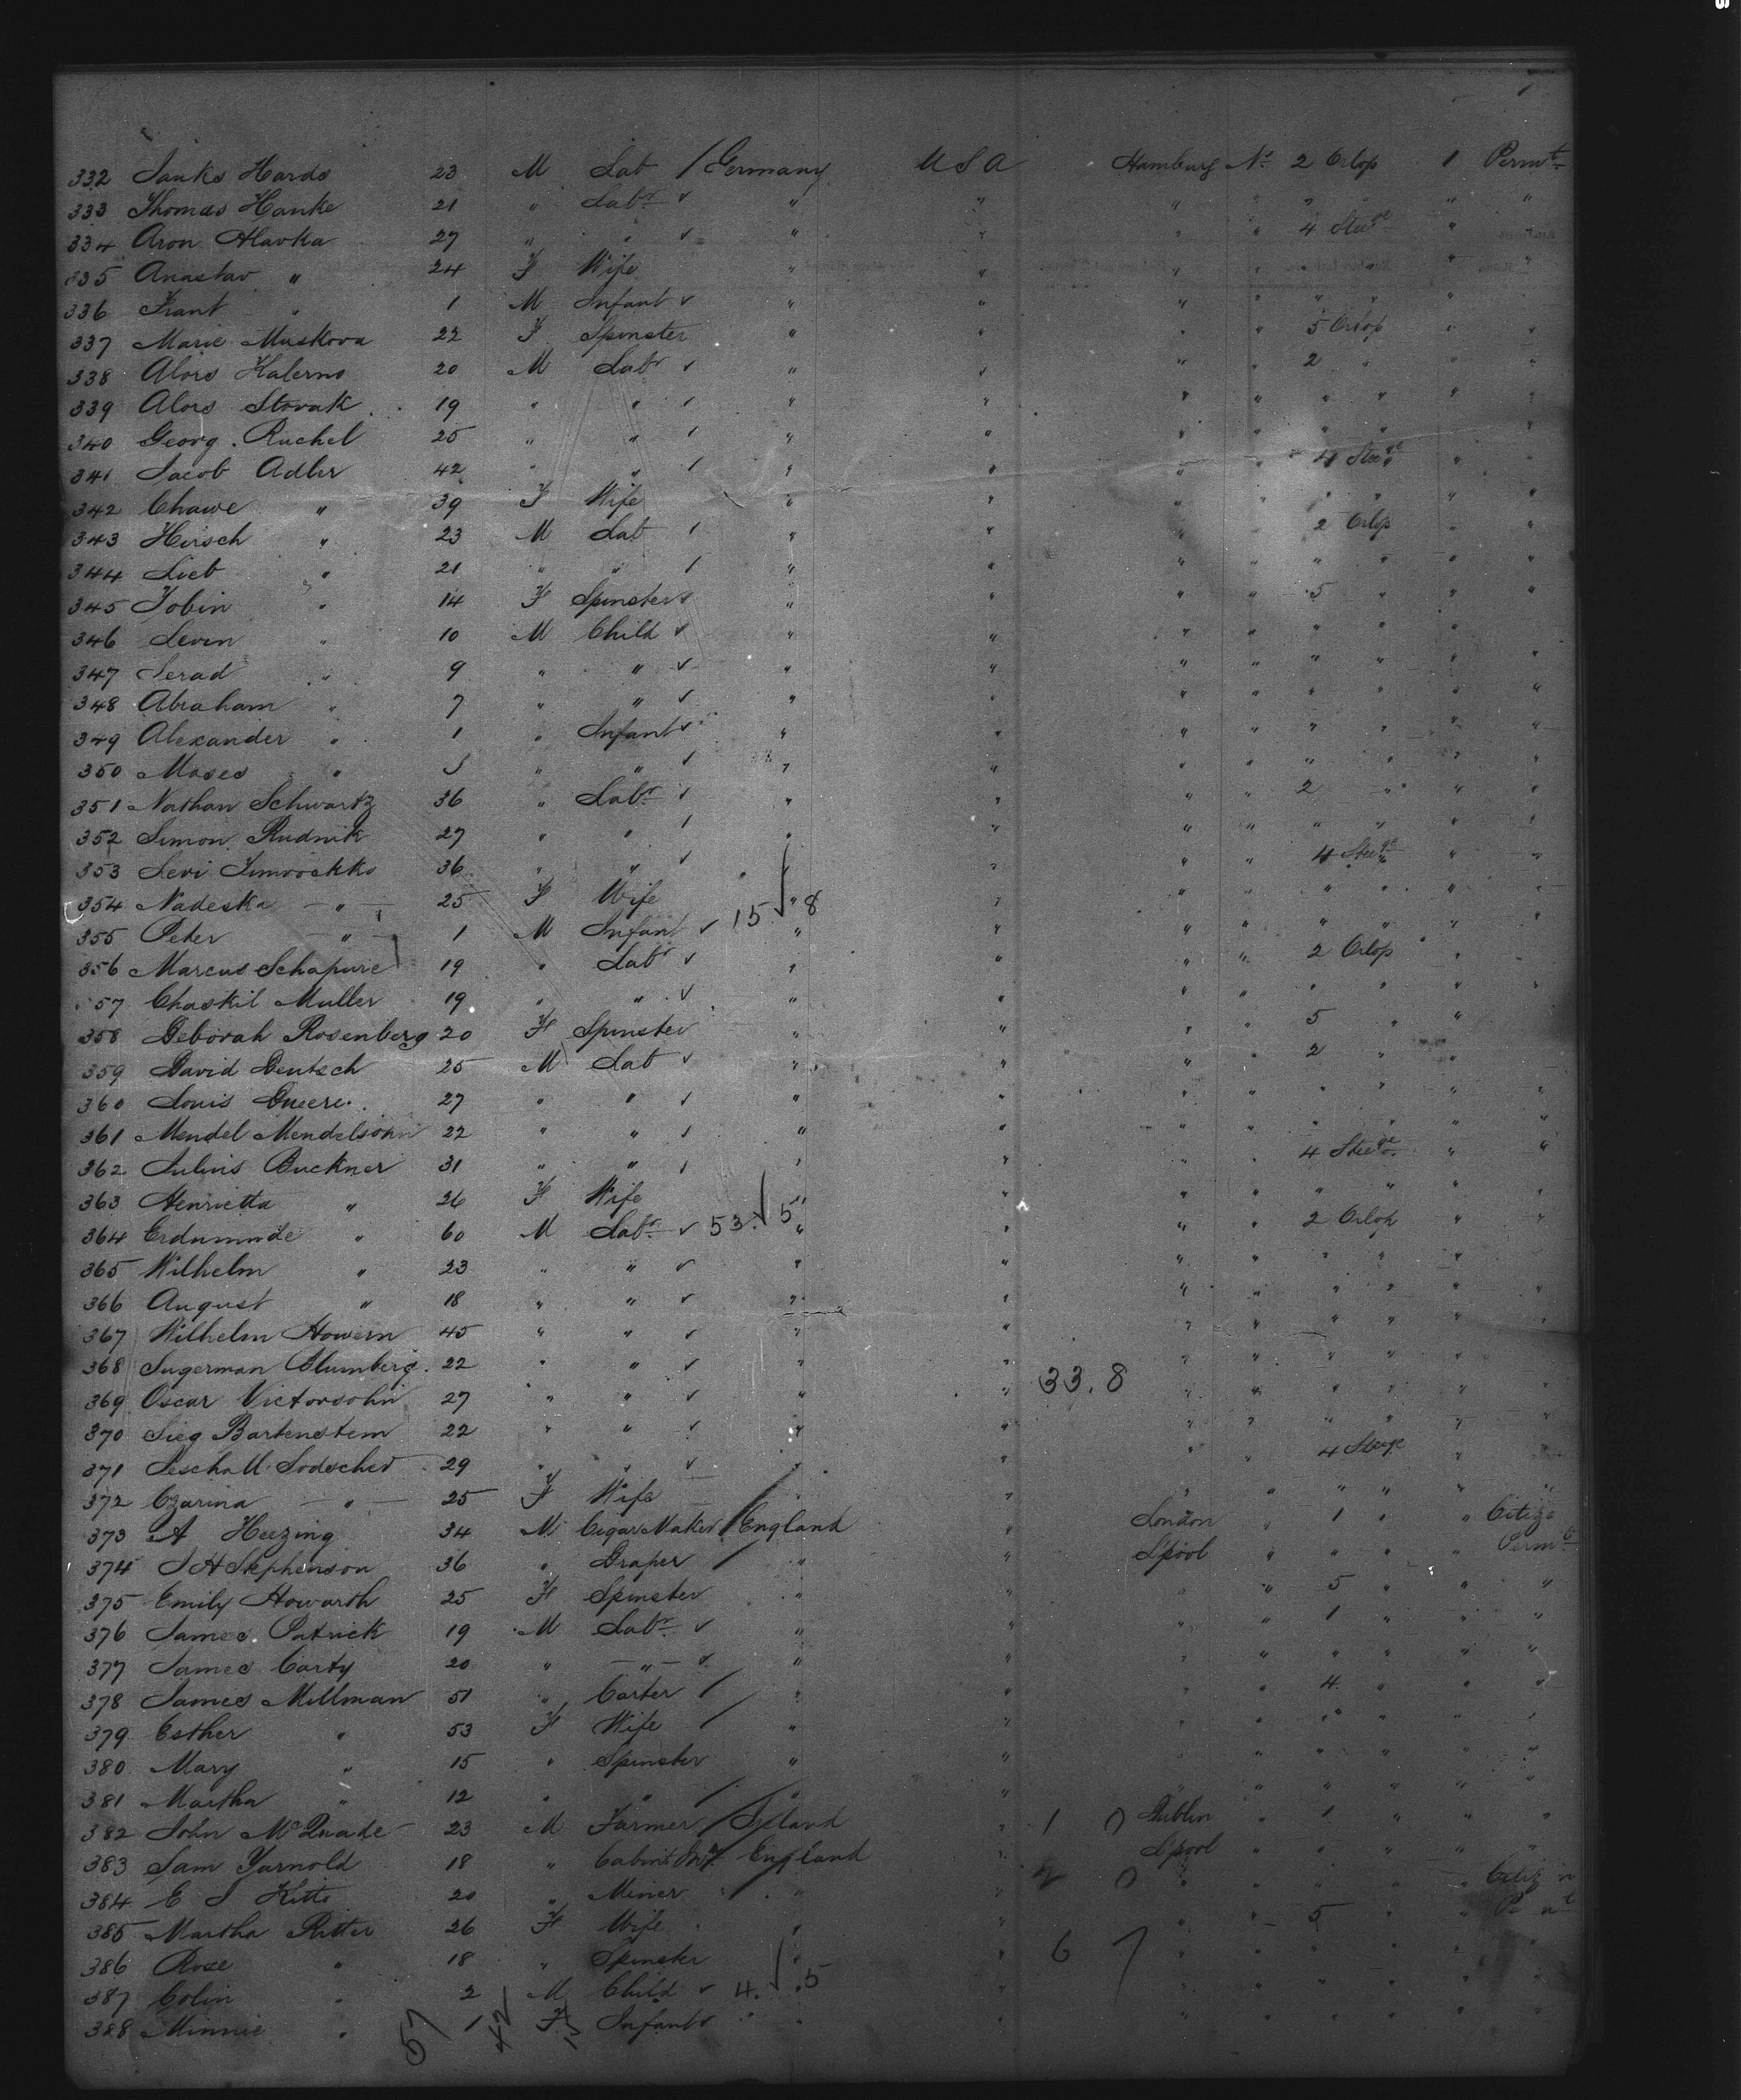 332 Janks Hards 23 M Lab / Germany U S A Hamburg No 2 Orlop 1 Permt
333 Thomas Hanke 21 " Labr " " " " " " " "
334 Aron Hlavka 27 " " " " " " 4 Steege "
335 Anastav " 24 F Wife " " " " " "
336 Frant " 1 M Infant " " " " " " "
337 Marie Muskova 22 F Spinster " " " " 5 Orlop " "
338 Alois Halerno 20 M Labr " " " " 2 " " "
339 Alois Slovak 19 " " " " " " " " " "
340 Georg Ruchel 25 " " " " " " " " "
341 Jacob Adler 42 " " " " " " 4 Steege " "
342 Chawe " 39 F Wife " " " " " " " "
343 Hirsch " 23 M Lab " " " " 2 Orlop " "
344 Lieb " 21 " " " " " " " " " "
345 Tobin " 14 F Spinster " " " " 5 " " "
346 Levin " 10 M Child " " " " " " "
347 Serad " 9 " " " " " " " " " "
348 Abraham " 7 " " " " " " " " " "
349 Alexander " 1 " Infant " " " " " " " "
350 Moses " " " " " " " " " " "
351 Nathan Schwartz 36 " Labr " " " " 2 " " "
352 Simon Rudnik 27 " " " " " " " " " "
353 Levi 36 " " " " " 4 Steege " "
354 Nadeska " 25 F Wife 15 " 8 " " " " " " "
355 Peter " 1 M Infant " " " " " " " "
356 Marcus Schapure 19 " Labr " " " " 2 Orlop "
357 Chaskil Muller 19 " " " " " " " " " "
358 Deborah Rosenberg 20 F Spinster " " " " 5 " "
359 David Deutsch 25 M Lab " " " " 2 " "
360 Louis 27 " " " " " " " " " "
361 Mendel Mendelsohn 22 " " " " " " " " " "
362 Julius Buckner 31 " " " " " " 4 Steege " "
363 Henrietta " 26 F Wife " " " " " " " "
364 " 60 M Labr 53 5 " " " " 2 Orlop " "
365 Wilhelm " 23 " " " " " " " " "
366 August " 18 " " " " " " " " " "
367 Wilhelm Howern 45 " " " " " " " " " "
368 Sugerman Blumberg 22 " " " " " " " " "
369 Oscar Victorsohn 27 " " " " 33.8 " " " " " "
370 Sieg Bartenstein 22 " " " " " " " " " "
371 29 " " " " " " 4 Steege "
372 Czarina " 25 F Wife " " " " " " " "
373 A Heezing 34 M Cigar Maker / England " London " 1 " " Citizn
374 J H Stephenson 36 " Draper / " " Lpool " " " " Permt
375 Emily Howarth 25 F Spinster " " " " 5 " " "
376 James Patrick 19 M Labr " " " " 1 " " "
377 James Carty 20 " " " " " " " " " "
378 James Millman 51 " Carter / " " " " 4 " " "
379 Esther " 53 F Wife / " " " " " " " "
380 Mary " 15 " Spinster " " " " " " "
381 Martha " 12 " " " " " " " " " "
382 John McQuade 23 M Farmer / Ireland " 1 0 Dublin " 1 " " "
383 Sam Yarnold 18 " Cabint Mr England " Lpool " " " " "
384 E J Kitts 20 " Miner " " 2 0 " " " " " Citizn
385 Martha Ritter 26 F Wife " " " " 5 " " Permt
386 Rose " 18 " Spinster " " 6 7 " " " " " "
387 Colin " 2 M Child 4 5 " " " " " " "
388 Minnie " 1 F Infant " " " " " " " "
57 42 15